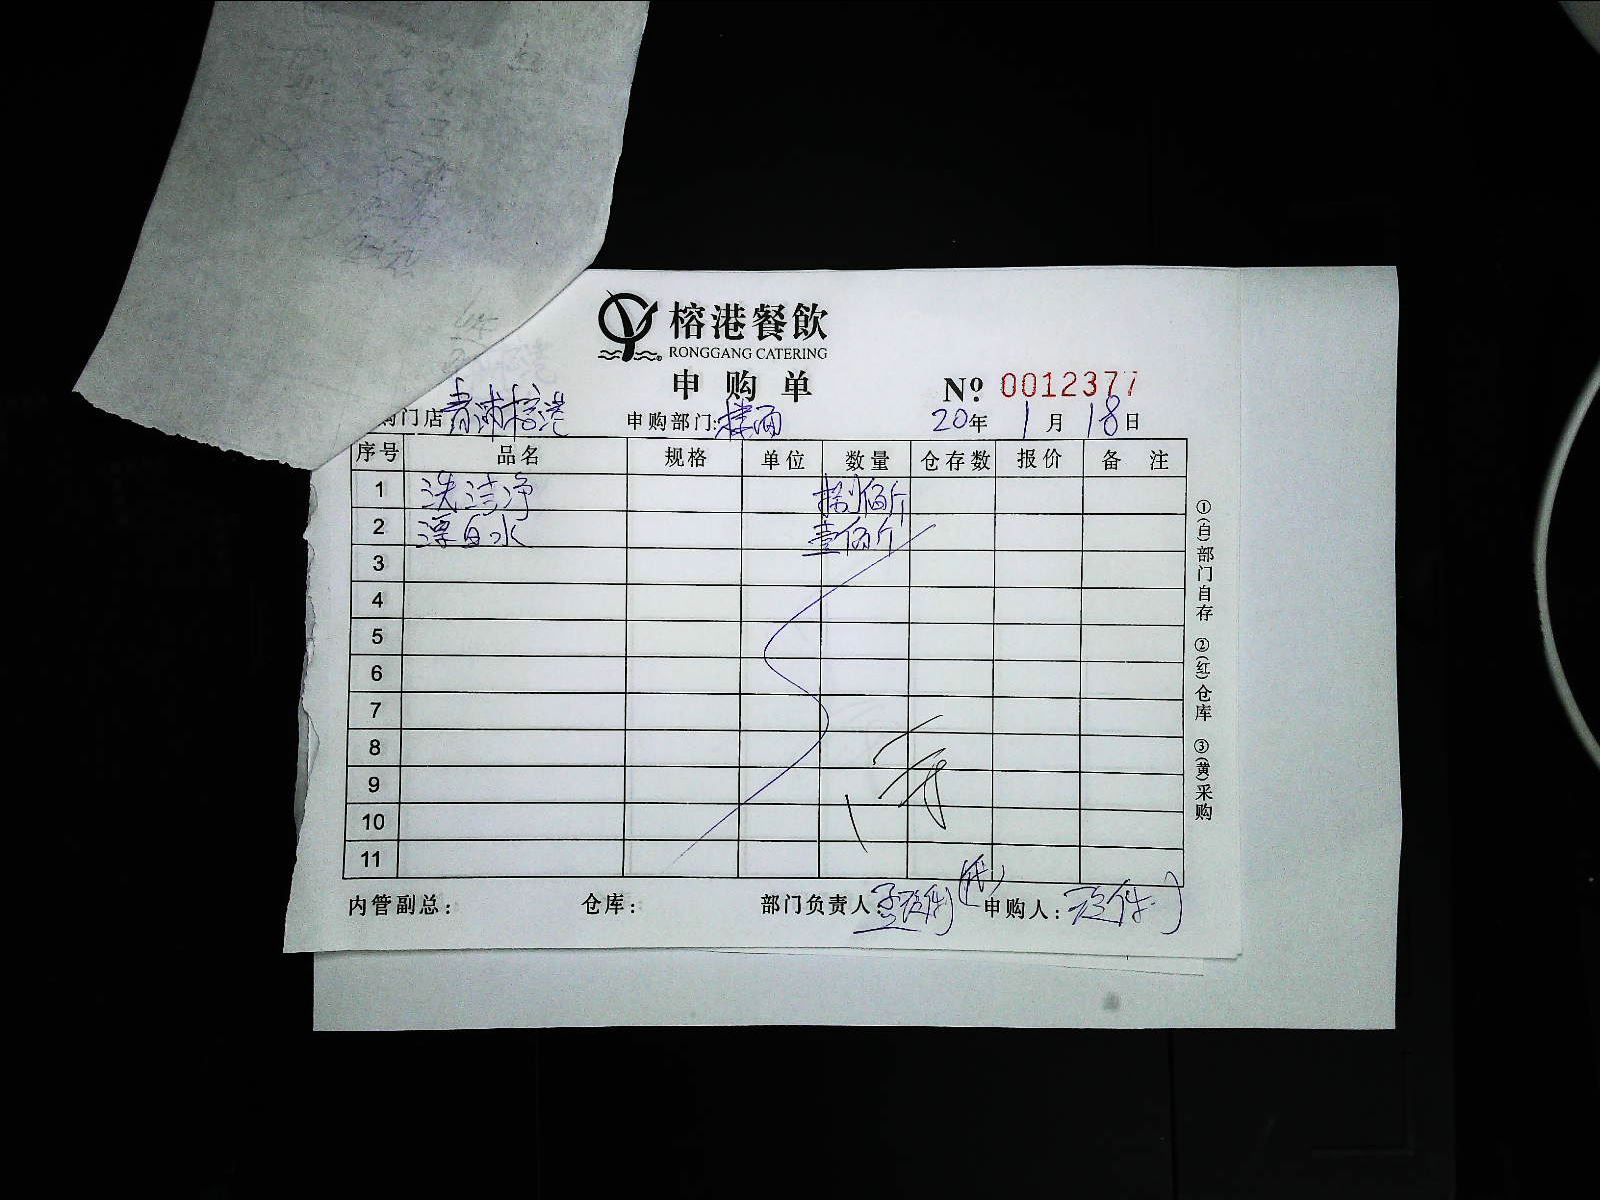 榕港餐飲
RONGGANG CATERING
申购单
Nº 0012377
门店 青浦榕港 申购部门: 楼面 20年 1月 18日
序号 品名 规格 单位 数量 仓存数 报价 备注
1 洗洁净 捌佰斤
2 漂白水 壹佰斤
3
4
5
6
7
8
9
10
11
内管副总: 仓库: 部门负责人: (代) 申购人:
①(白)部门自存 ②(红)仓库 ③(黄)采购